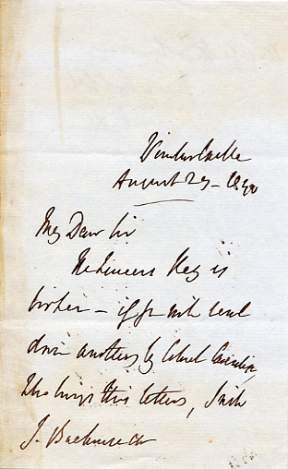 Windsor Castle
August 27 - 1840
My Dear Sir
The Queen's Key is
broken - if you will send
down another by Colonel
who brings this letter, I will